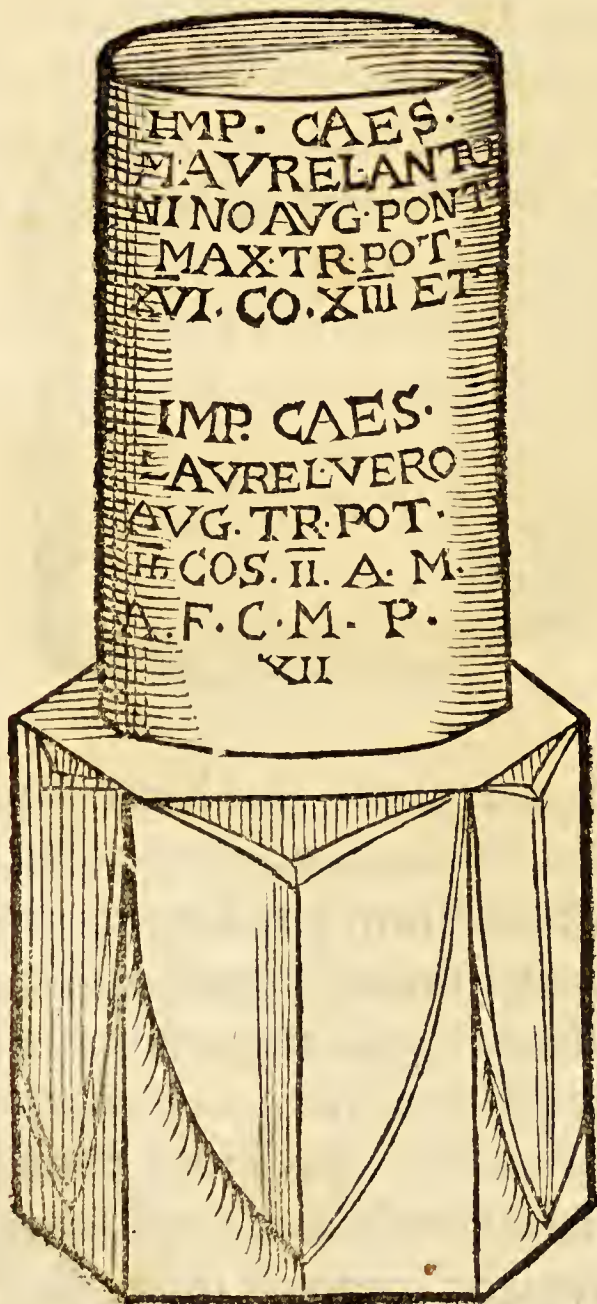 IMP. CAES.
M. AVREL. ANTO
NINO AVG. PONT.
MAX. TR. POT.
XVI. CO. XIII ET
IMP. CAES.
L AVREL. VERO
AVG. TR. POT.
II. COS. II. A. M.
A. F. C. M. P.
XII